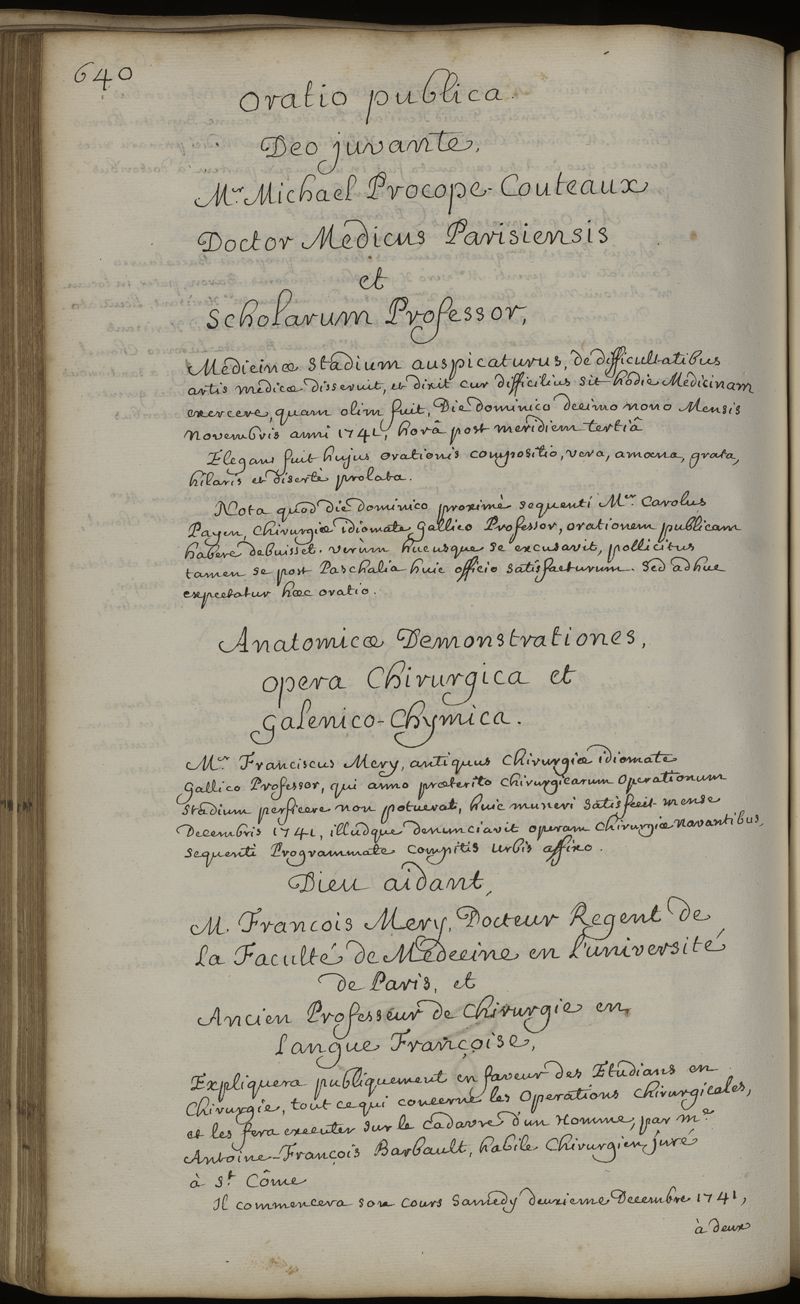 640
Oratio publica.
Deo juvante,
Mr. Michael Procope-Couteaux
Doctor Medicus Parisiensis
et
Scholarum Professor,
Medicinæ stadium auspicaturus, de difficultatibus
artis medicæ disseruit, et dixit cur difficilius sit hodie Medicinam
exercere, quam olim fuit, Die dominico decimo nono Mensis
Novembris anni 1741, horâ post meridiem tertiâ
Elegans fuit hujus orationis compositio, vera, amœna, grata,
hilaris et disertè prolata.
Nota quod die dominico proximè sequenti Mer. Carolus
Payen, Chirurgiæ idiomate gallico Professor, orationem publicam
habere debuisset. verùm hucusque se excusavit, pollicitus
tamen se post Paschalia huic officio satisfacturum. Sed adhuc
expectatur hæc oratio.
Anatomicæ Demonstrationes,
opera Chirurgica et
galenico-Chymica.
Mer. Franciscus Mery, antiquus Chirurgiæ idiomate
gallico Professor, qui anno præterito Chirurgicarum Operationum
stadium perficere non potuerat, huic muneri satisfecit mense
Decembris 1741, illudque denunciavit operam Chirurgiæ navantibus,
sequenti Programmate compitis urbis affixo.
Dieu aidant,
M. Francois Mery, Docteur Regent de
la Faculté de Médecine en l'université
de Paris, et
Ancien Professeur de Chirurgie en
langue Françoise,
Expliquera publiquement en faveur des Etudians en
Chirurgie, tout ce qui concerne les Operations chirurgicales,
et les fera executer sur le Cadavre d'un Homme, par me.
Antoine-François Barbault, habile Chirurgien juré
à St. Côme
Il commencera son cours Samedy deuxieme Decembre 1741,
à deux